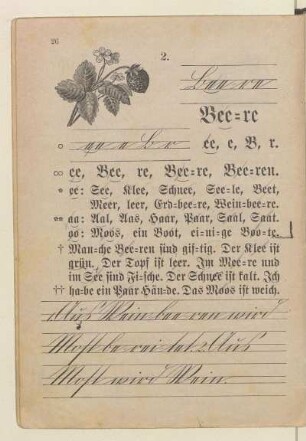 26
2.
Bee re
Bee=re
○ ee e B r ee, e, B, r.
○○ ee, Bee, re, Bee=re, Bee=ren.
* ee: See, Klee, Schnee, See=le, Beet,
Meer, leer, Erd=bee=re, Wein=bee=re.
** aa: Aal, Aas, Haar, Paar, Saal, Saat.
oo: Moos, ein Boot, ei=ni=ge Boo=te.
† Man=che Bee=ren sind gif=tig. Der Klee ist
grün. Der Topf ist leer. Im Mee=re und
im See sind Fi=sche. Der Schnee ist kalt. Ich
†† ha=be ein Paar Hän=de. Das Moos ist weich.
Aus Wein bee ren wird
Most be rei tet. Aus
Most wird Wein.